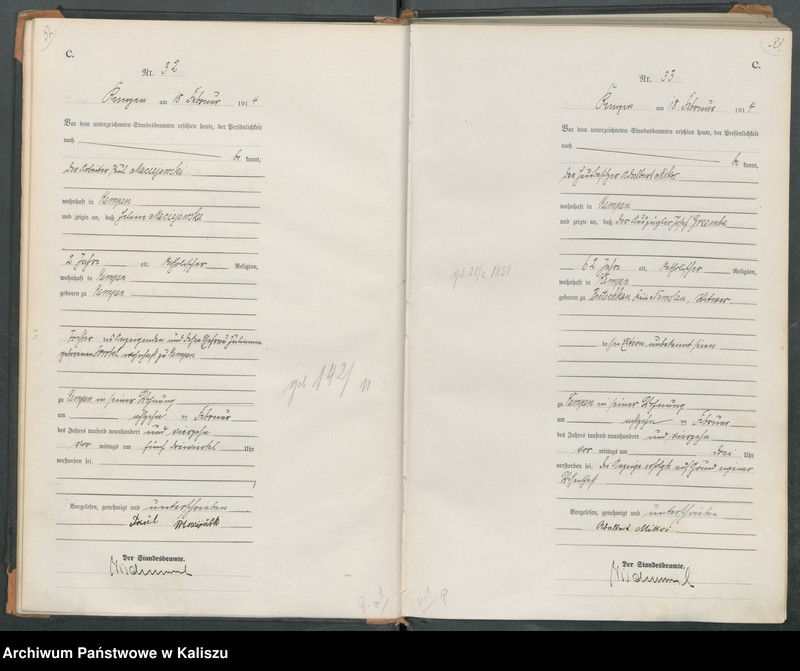 C.
Nr. 32
Kempen am 18 Februar 1914
Vor dem unterzeichneten Standesbeamten erschien heute, der Persönlichkeit
nach
be kannt,
der Arbeiter Paul Maciejewski
wohnhaft in Kempen
und zeigte an, daß Helene Maciejewska
2 Jahre alt, katholischer Religion,
wohnhaft in Kempen
geboren zu Kempen
Tochter des Anzeigenden und dessen Ehefrau Julianna
geborenen wohnhaft zu Kempen
zu Kempen in seiner Wohnung
am achtzehn en Februar
des Jahres tausend neunhundert und vierzehn
vor mittags um fünf dreiviertel Uhr
verstorben sei.
Vorgelesen, genehmigt und unterschrieben
Paul
Der Standesbeamte.
geb 142/11
33
C.
Nr. 33
Kempen am 18 Februar 1914
Vor dem unterzeichneten Standesbeamten erschien heute, der Persönlichkeit
nach
be kannt,
der Hausbesitzer Adalbert Mikos
wohnhaft in Kempen
und zeigte an, daß der Auszügler Josef
62 Jahre alt, katholischer Religion,
wohnhaft in Kempen
geboren zu Kreis Namslau, Witwer
dessen Eltern unbekannt seien
zu Kempen in seiner Wohnung
am achtzehn en Februar
des Jahres tausend neunhundert und vierzehn
vor mittags um drei Uhr
verstorben sei. Die Anzeige erfolgte auf Grund eigener
Wissenschaft
Vorgelesen, genehmigt und unterschrieben
Adalbert Mikos
Der Standesbeamte.
Archiwum Państwowe w Kaliszu